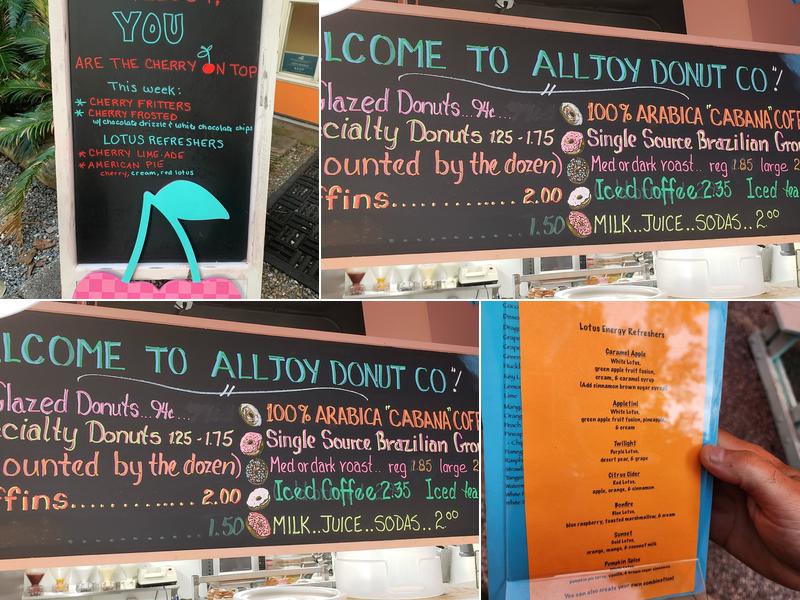 YOU
ARE THE CHERRY ON TOP
This week:
* CHERRY FRITTERS
* CHERRY FROSTED
w/ chocolate drizzle & white chocolate chips
LOTUS REFRESHERS
* CHERRY LIME-ADE
* AMERICAN PIE
cherry, cream, red lotus
LCOME TO ALLJOY DONUT CO"!
Glazed Donuts...94¢...
cialty Donuts 1.25-1.75
ounted by the dozen)
ffins............... 2.00
1.50
100% ARABICA "CABANA" COFF
Single Source Brazilian Grou
Med or dark roast.. reg 1.85 large 2
Iced Coffee 2.35 Iced tea
MILK..JUICE..SODAS..2.00
LCOME TO ALLJOY DONUT CO"!
Glazed Donuts...94¢...
ecialty Donuts 1.25-1.75
ounted by the dozen)
ffins............... 2.00
1.50
100% ARABICA "CABANA" COFF
Single Source Brazilian Grou
Med or dark roast.. reg 1.85 large 2
Iced Coffee 2.35 Iced tea
MILK..JUICE..SODAS..2.00
Lotus Energy Refreshers
Caramel Apple
White Lotus,
green apple fruit fusion,
cream, & caramel syrup
(Add cinnamon brown sugar syrup)
Appletini
White Lotus,
green apple fruit fusion, pineapple,
& cream
Twilight
Purple Lotus,
desert pear, & grape
Citrus Cider
Red Lotus,
apple, orange, & cinnamon
Bonfire
Blue Lotus,
blue raspberry, toasted marshmallow, & cream
Sunset
Gold Lotus,
orange, mango, & coconut milk
Pumpkin Spice
You can also create your own combination!